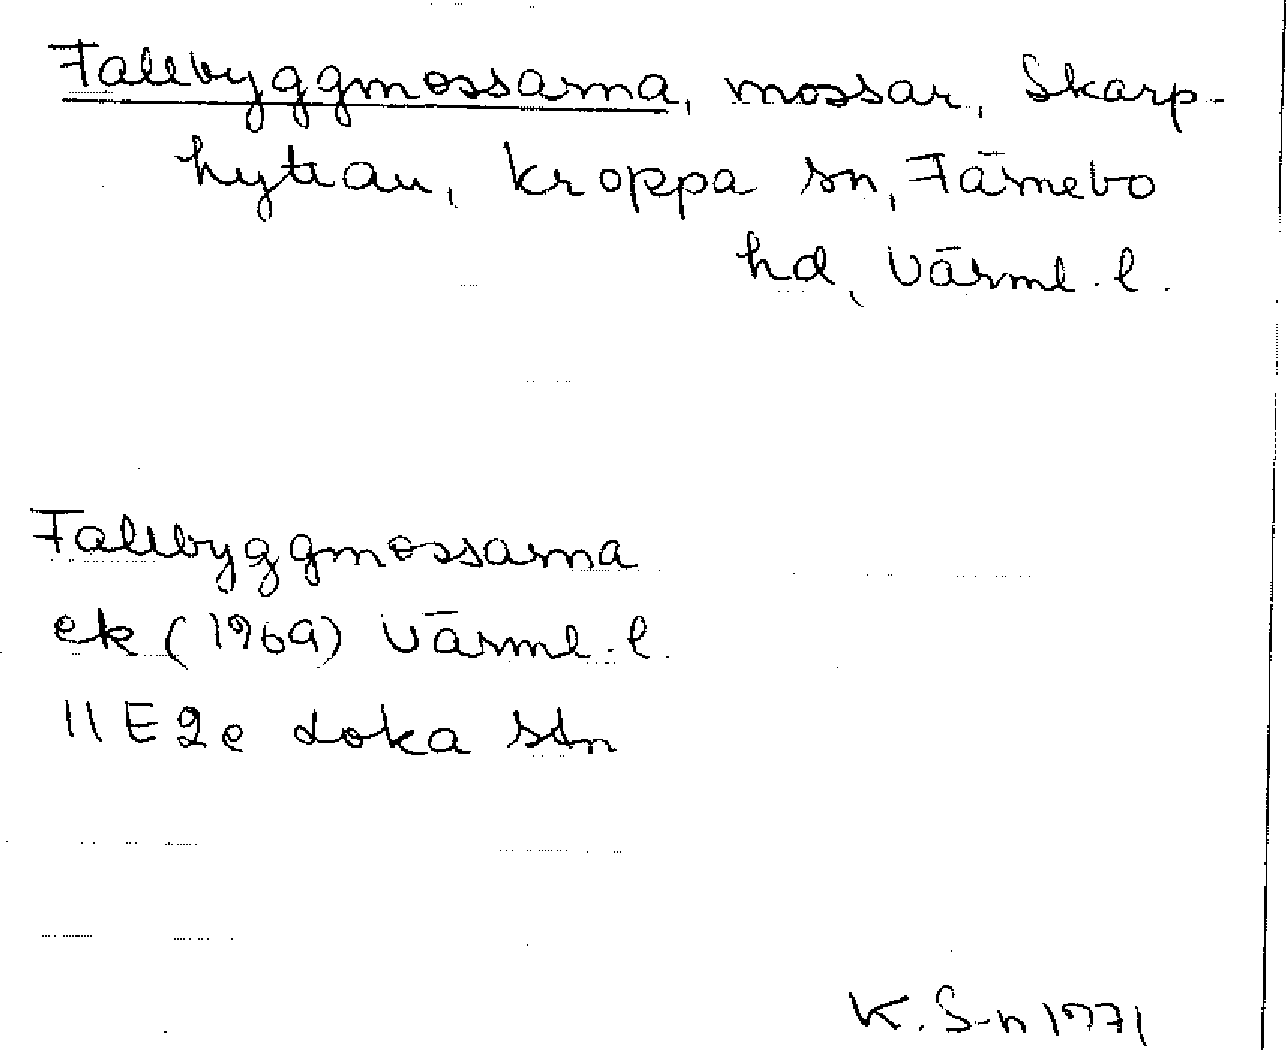 Fallbyggmossarna, mossar, Skarp-
hyttan, Kroppa sn, Färnebo
hd, Värml. l.
Fallbyggmossarna
ek (1969) Värml. l.
11E2e Loka stn
K. S-n 1971